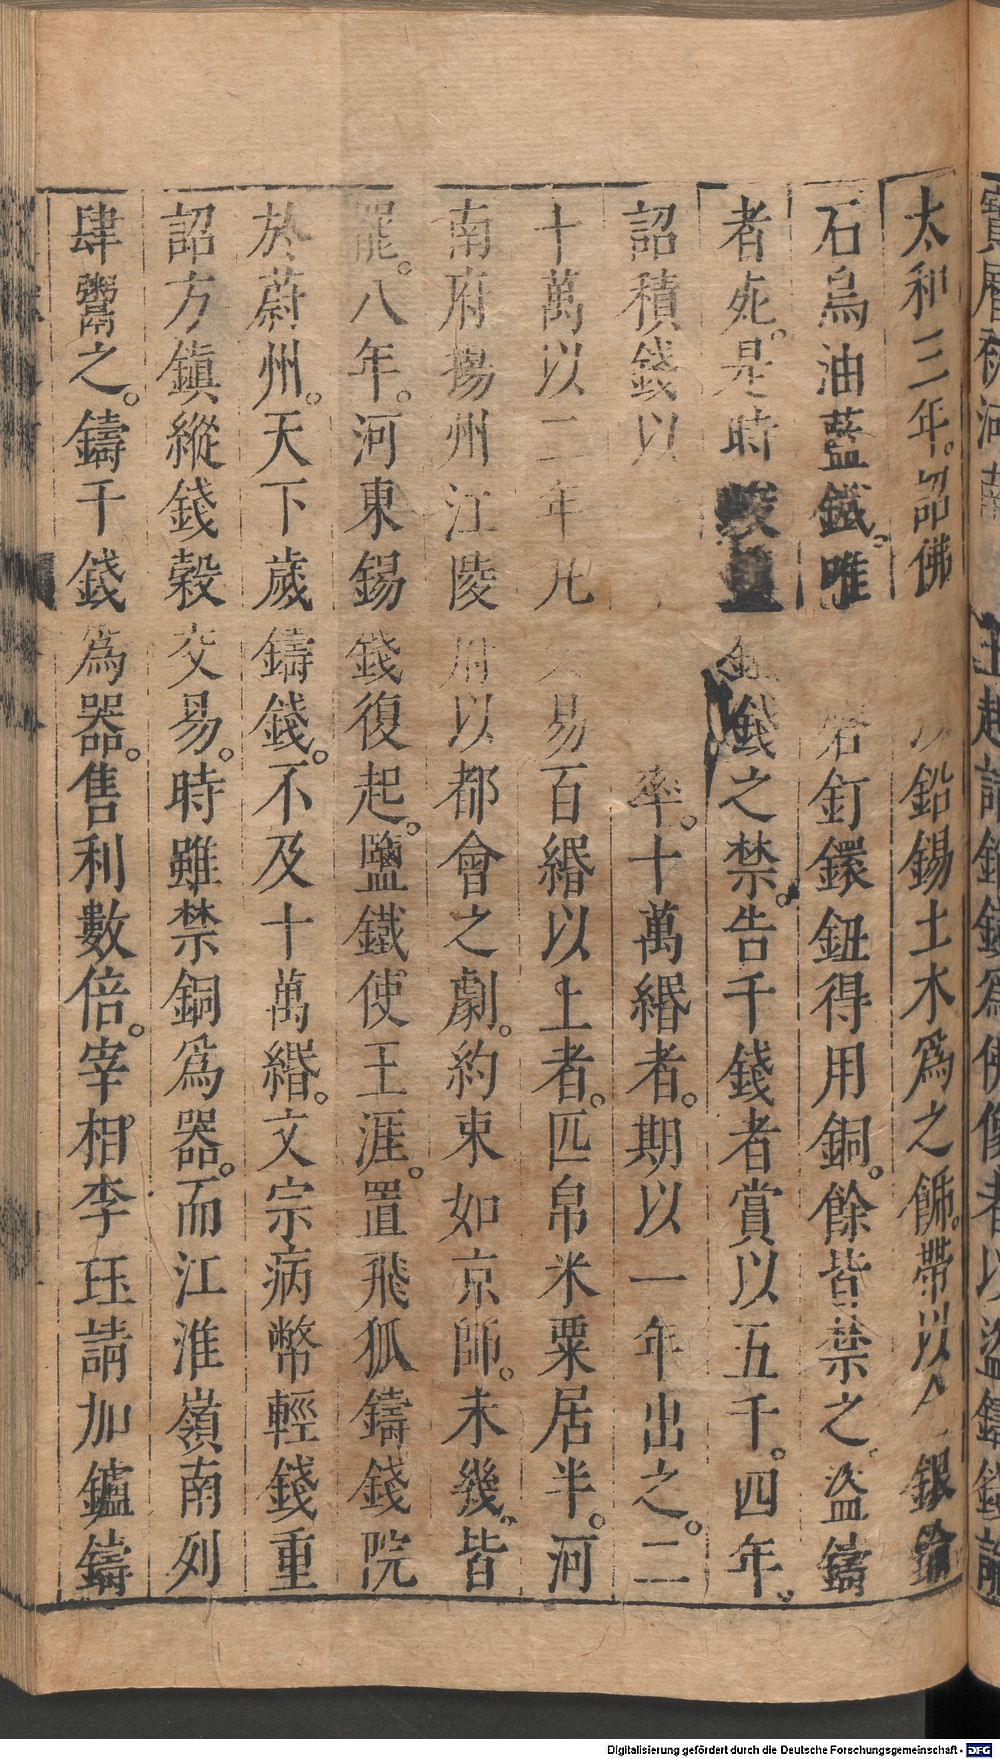 寶曆初河
王起請銷錢爲佛像者以盜鑄錢論
太和三年。詔佛
以鉛錫土木爲之飾。帶以
銀鍮
石烏油藍鐵。唯
釘鐶鈕得用銅。餘皆禁之。盜鑄
者死。是時
錢之禁。告千錢者賞以五千。四年。
詔積錢以
率。十萬緡者。期以一年出之。二
十萬以二年凡
易百緡以上者。匹帛米粟居半。河
南府揚州江陵府以都會之劇。約束如京師。未幾。皆
罷。八年。河東錫錢復起。鹽鐵使王涯。置飛狐鑄錢院
於蔚州。天下歲鑄錢。不及十萬緡。文宗病幣輕錢重
詔方鎮縱錢穀交易。時雖禁銅爲器。而江淮嶺南列
肆鬻之。鑄千錢爲器。售利數倍。宰相李珏請加鑪鑄
Digitalisierung gefördert durch die Deutsche Forschungsgemeinschaft - DFG